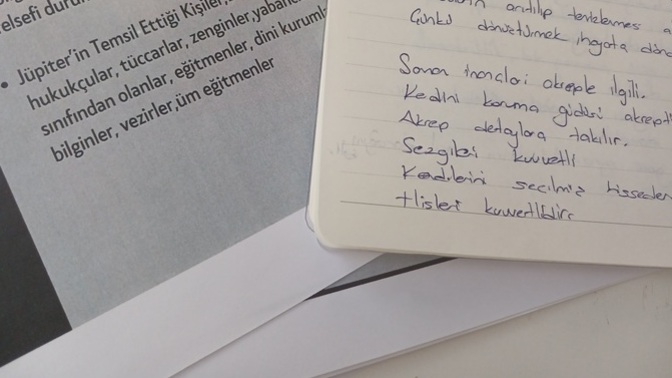 elsefi duru
• Jüpiter'in Temsil Ettiği Kişiler,
hukukçular, tüccarlar, zenginler,yabanc
sınıfından olanlar, eğitmenler, dini kuruml
bilginler, vezirler,üm eğitmenler
arıtılıp temizlenmes a
Çünkü dönüştürmek ,hayata dönd
inançları akreple ilgili.
Kedini koruma güdüsü akrept
Akrep detaylara takılır.
Sezgileri kuvvetli
Kendilerini seçilmiş hisseder
Hisleri kuvvetlidir